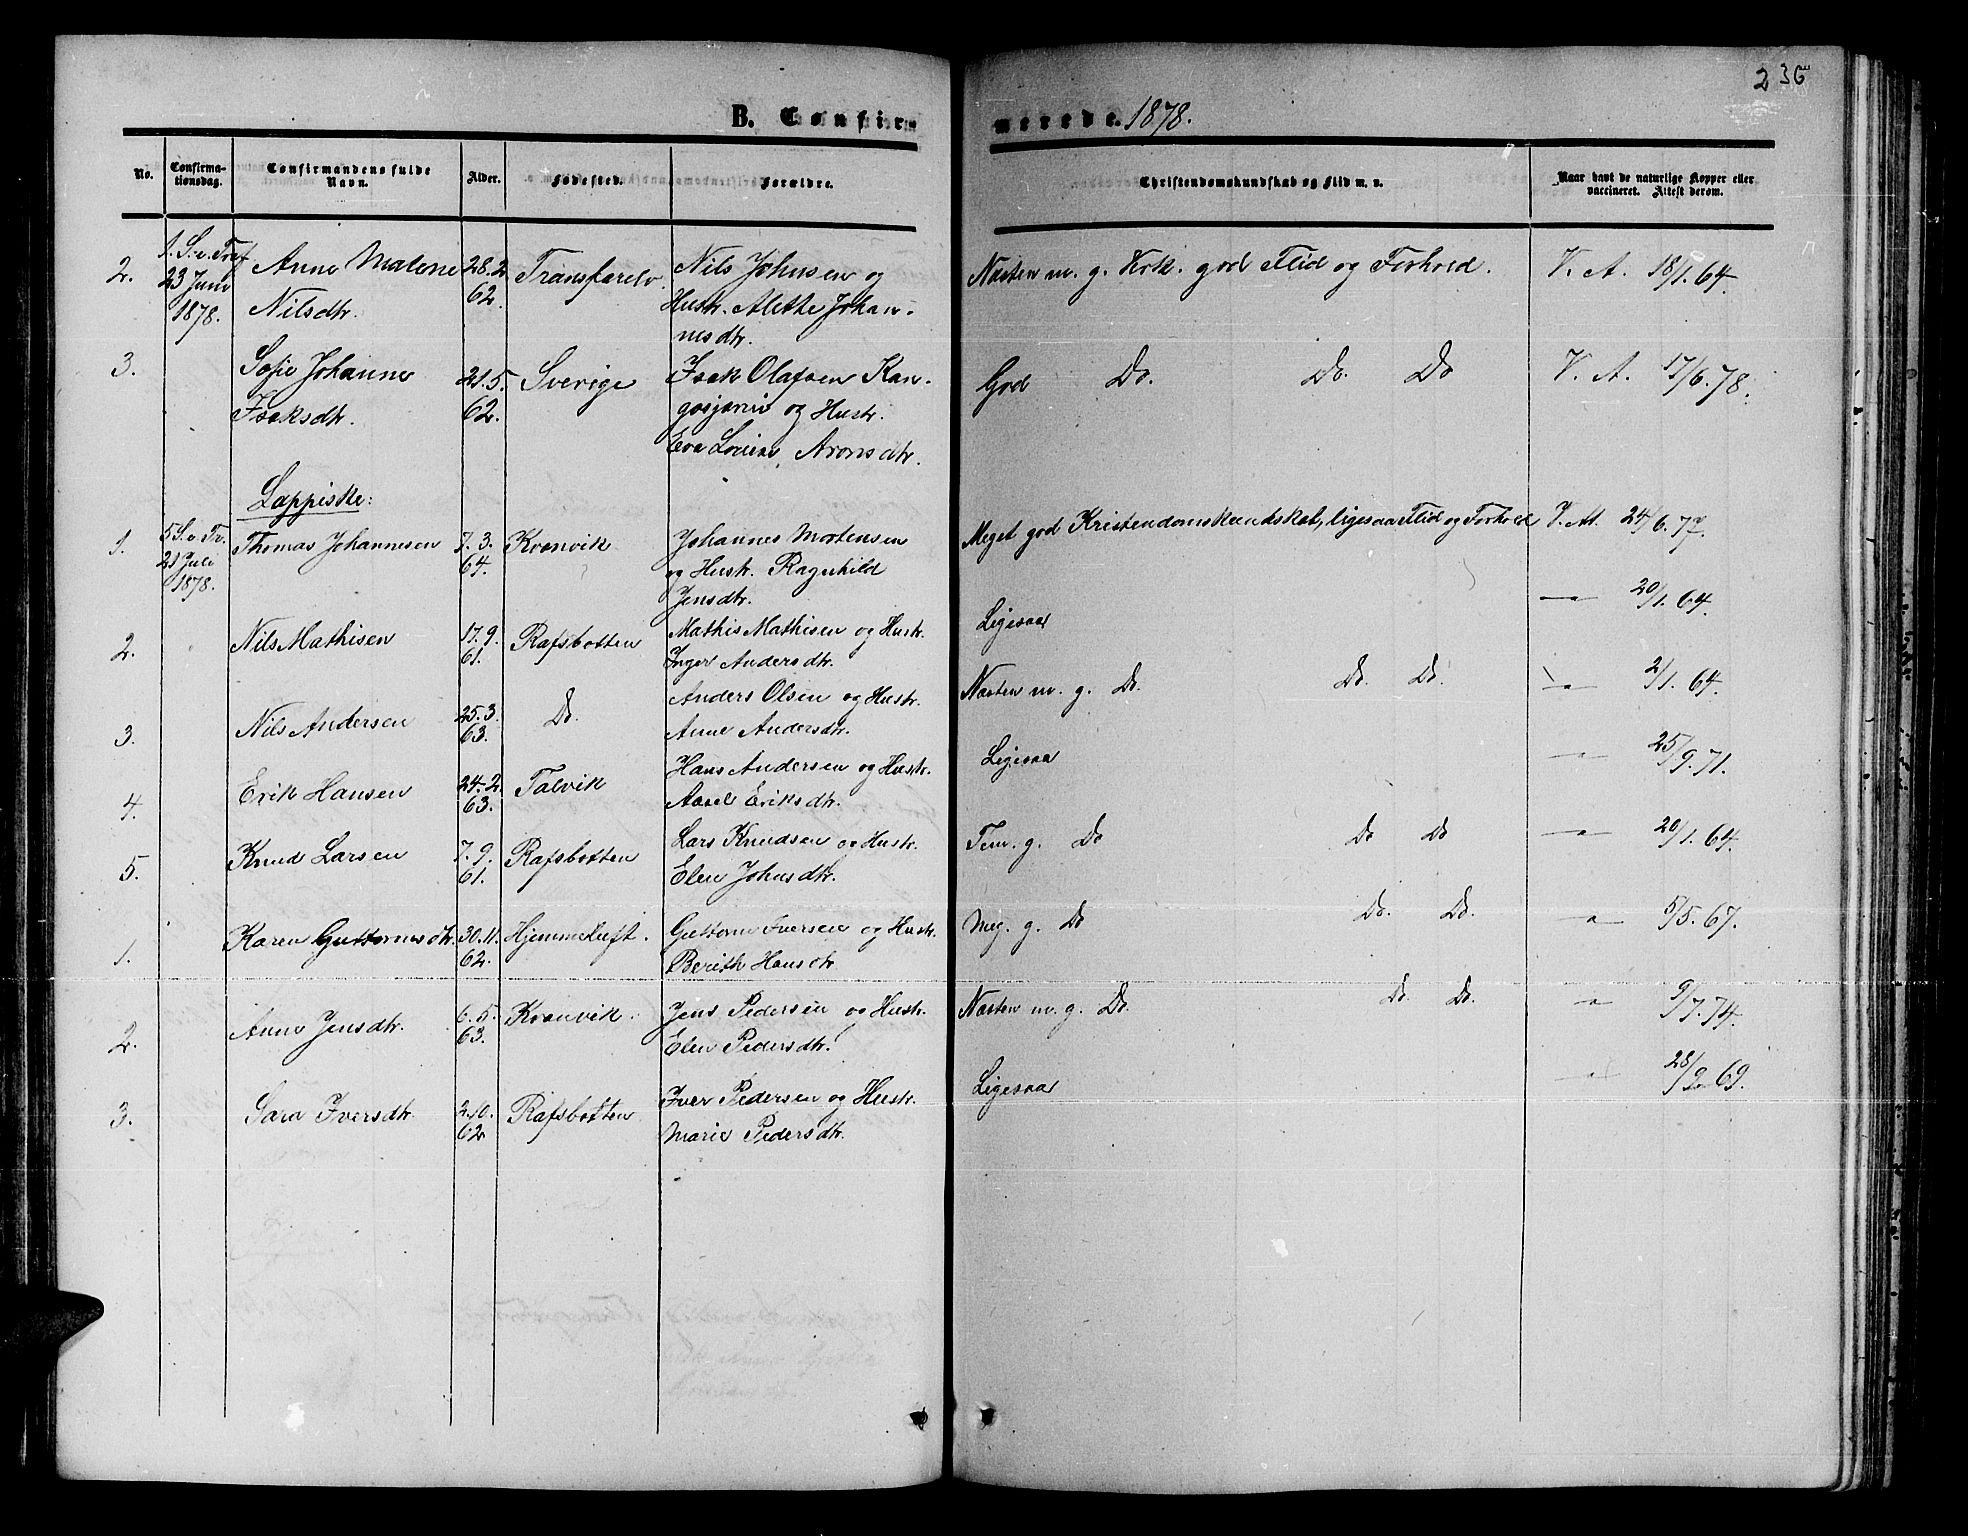 236
B. Confirmerede. 1878.
No. Confirmationsdag. Confirmandens fulde Navn. Alder. Fødested. Forældre. Christendomskundskab og Flid m. v. Naar havt de naturlige Kopper eller vaccineret. Attest derom.
2. 1. S. e. Tref Anne Malene 28. 2 Transfarelv. Nils Johnsen og Næsten m. g. Krk. god Flid og Forhold. V. A. 18/1. 64.
23 Juni 1878. Nilsdtr. 62. Hustr. Alette Johan-
nesdtr.
3. Sofie Johanne 21. 5. Sverige Isak Olafsen Kan- God Do. Do. Do V. A. 17/6. 78.
Isaksdtr. 62. og Hustr.
Eva Lovise Aronsdtr.
Lappiske:
1. 5 S. e. Tr. Thomas Johannesen 7. 3. Kvænvik Johannes Mortensen Meget god Kristendomskundskab, ligesaa Flid og Forhold V. At. 24/6. 77.
21 Juli 1878. 64. og Hustr. Ragnhild
Jensdtr.
2. Nils Mathisen 17. 9. Rafsbotten Mathis Mathisen og Hustr. Ligesaa — " — 20/1. 64.
61. Inger Andersdtr.
3. Nils Andersen 25. 3. Do. Anders Olsen og Hustr. Næsten m. g. Do. Do. Do. — " — 2/1. 64.
63. Anne Andersdtr.
4. Erik Hansen 24. 2. Talvik Hans Andersen og Hustr. Ligesaa — " — 25/9. 71.
63. Eriksdtr.
5. Knud Larsen 7. 9. Rafsbotten Lars Knudsen og Hustr. Tem. g. Do Do Do — " — 20/1. 64.
61. Elen Johnsdtr.
1. Karen Guttormsdtr. 30. 11. Hjemmeluft. Guttorm Iversen og Hustr. Meg. g. Do Do. Do. — " — 5/5. 67.
62. Berith Hansdtr.
2. Anne Jensdtr. 6. 5. Kvænvik. Jens Pedersen og Hustr. Næsten m. g. Do. Do. Do. — " — 9/7. 74.
63. Elen Pedersdtr.
3. Sara Iversdtr. 2. 10. Rafsbotten Iver Pedersen og Hustr. Ligesaa — " — 28/9. 69.
62 Marie Pedersdtr.